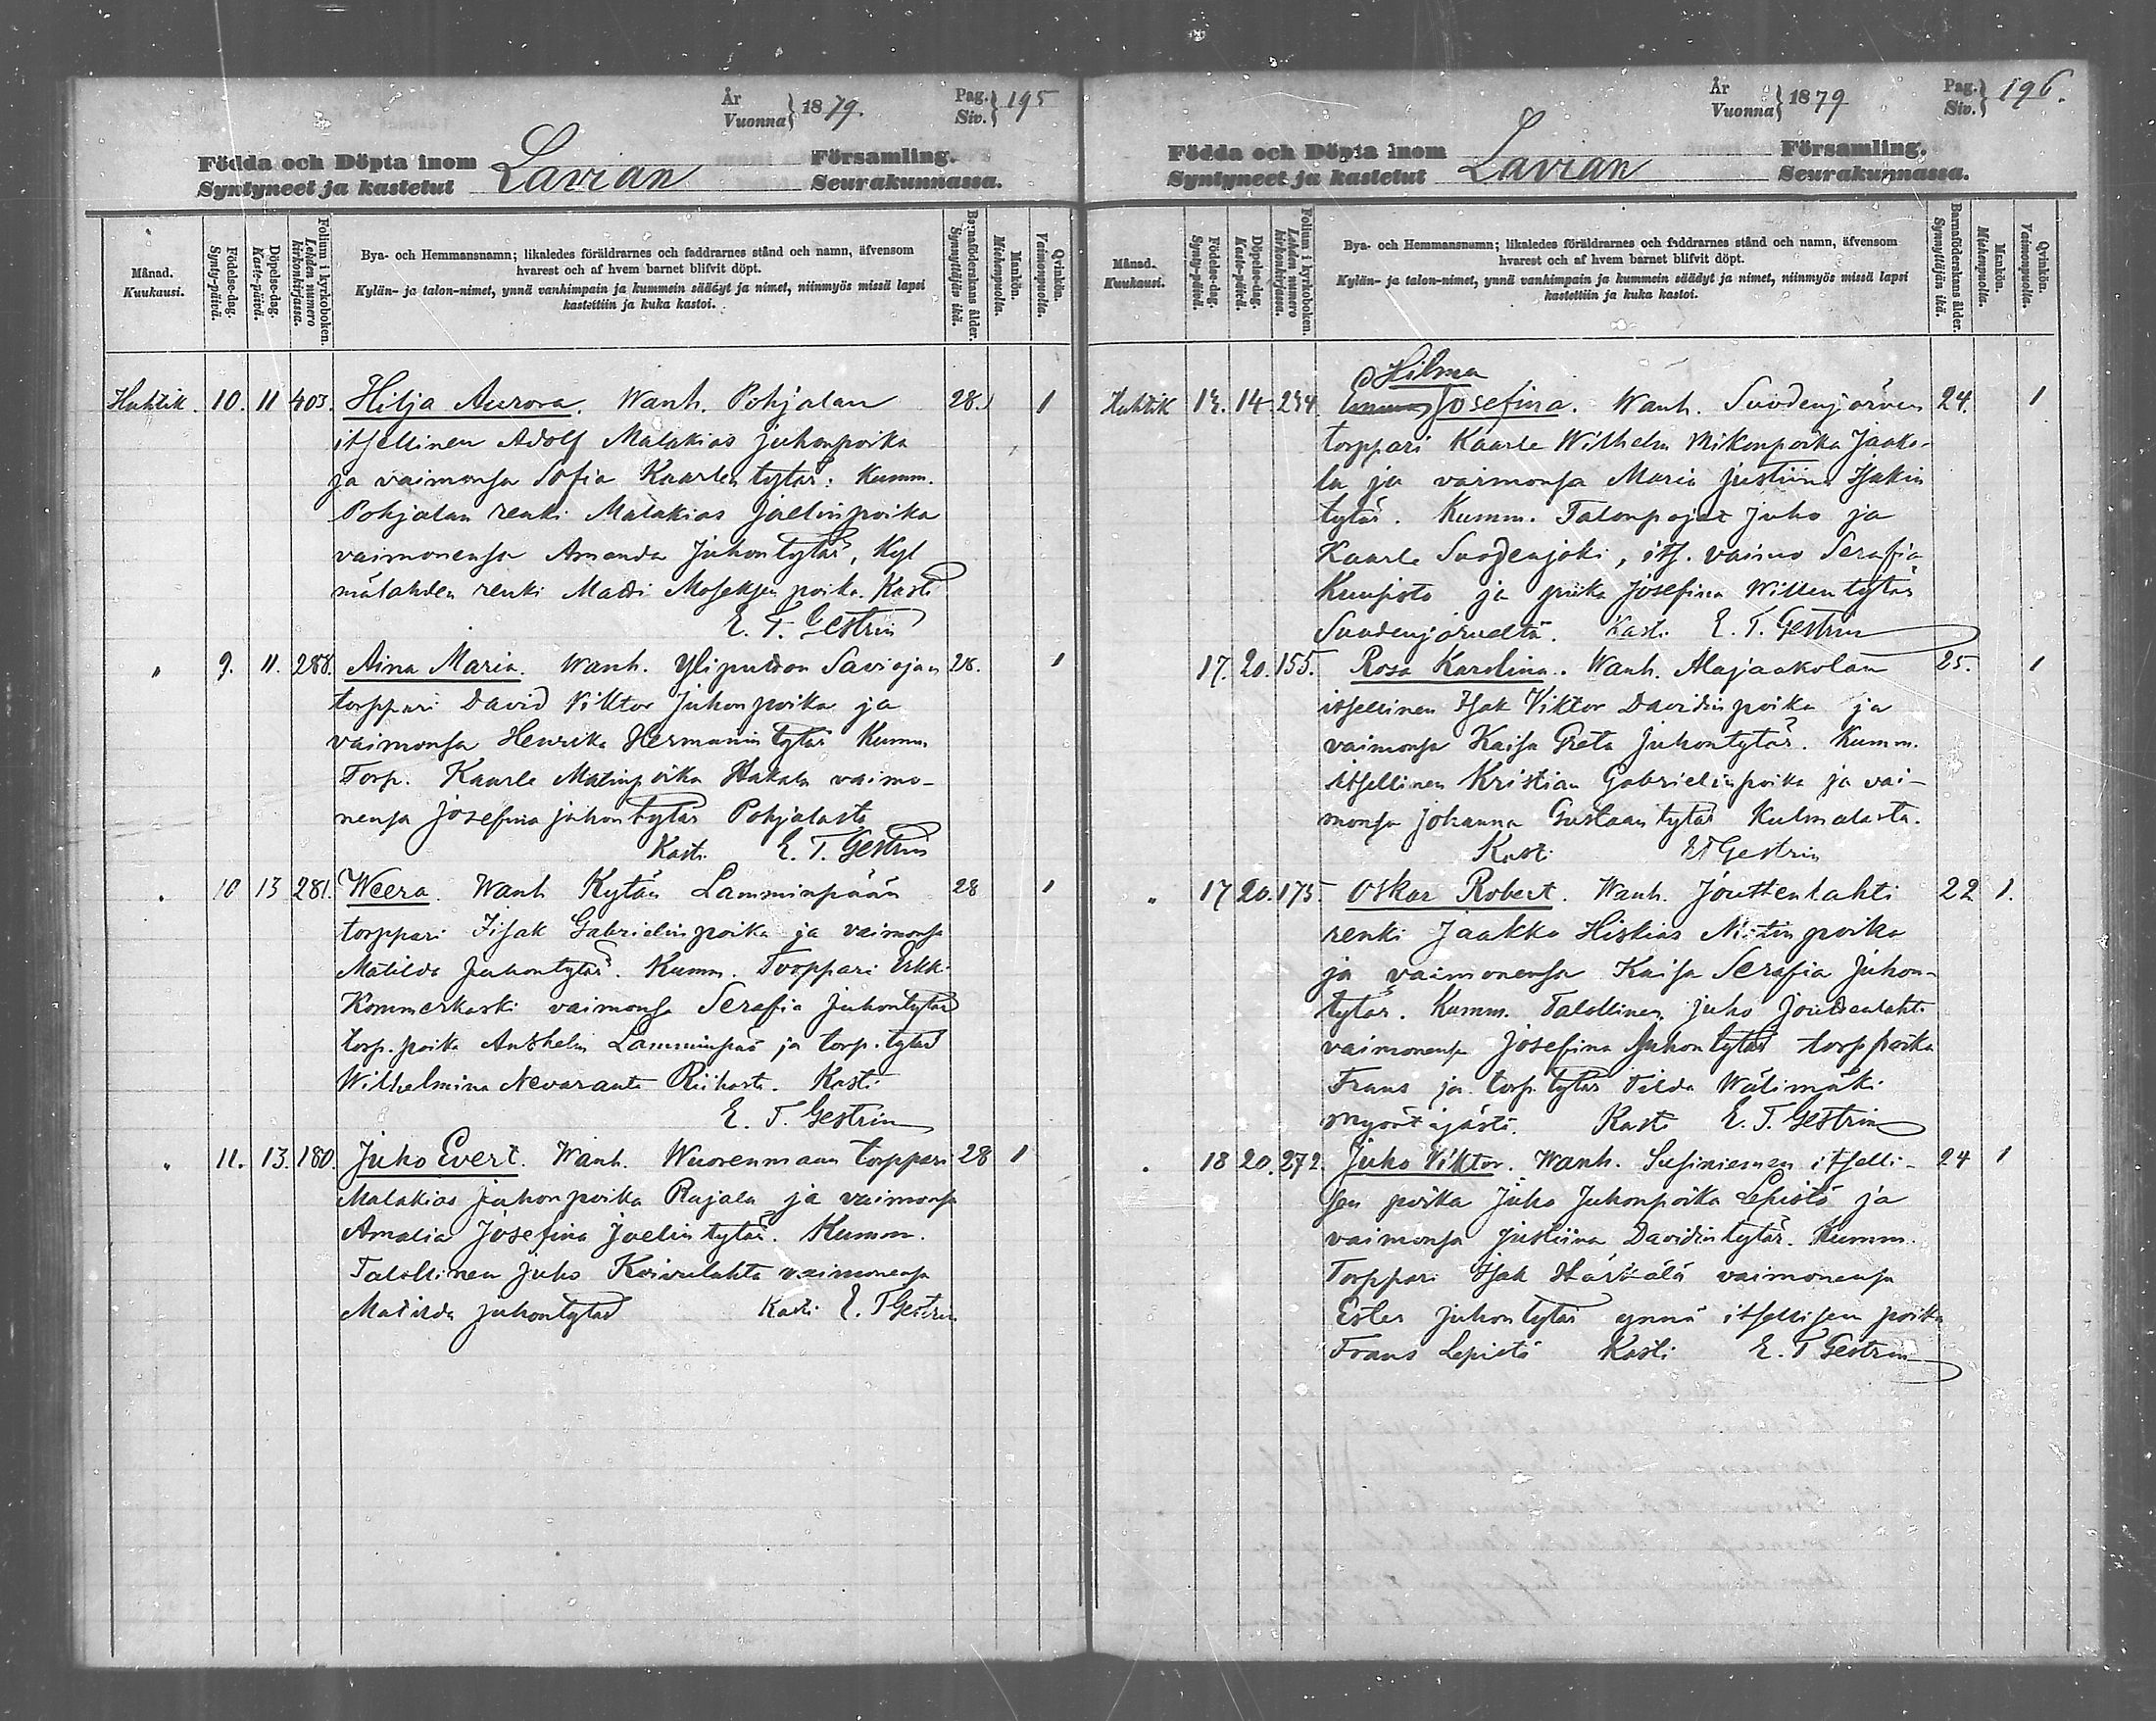 År
Vuonna } 1879. Pag.
Siv. } 195
Födda och Döpta inom
Syntyneet ja kastetut Lavian Församling.
Seurakunnassa.
Månad.
Kuukausi.
Födelse-dag.
Synty-päivä.
Döpelse-dag.
Kaste-päivä.
Folium i kyrkoboken.
Lehden numero
kirkonkirjassa.
Bya- och Hemmansnamn; likaledes föräldrarnes och faddrarnes stånd och namn, äfvensom
hvarest och af hvem barnet blifvit döpt.
Kylän- ja talon-nimet, ynnä vanhimpain ja kummein säädyt ja nimet, niinmyös missä lapsi
kastettiin ja kuka kastoi.
Barnaföderskans ålder.
Synnyttäjän ikä.
Mankön.
Miehenpuolta.
Qvinkön.
Vaimonpuolta.
Huhtik. 10. 11 403. Hilja Aurora. Wanh. Pohjalan 28. 1
itsellinen Adolf Malakias Juhonpoika
ja vaimonsa Sofia Kaarlentytär. Kumm.
Pohjalan renki Malakias Joelinpoika
vaimonensa Amanda Juhontytär, Kyl
mälahden renki Matti Moseksen poika. Kasti
E. T. Gestrin
" 9. 11. 288. Aina Maria. Wanh. Yliputton Saviojan 28. 1
torppari David Viktor Juhonpoika ja
vaimonsa Henrika Hermannintytär Kumm.
Torp. Kaarle Matinpoika Hakala vaimo-
nensa Josefina Juhontytär Pohjalasta
Kasti E. T. Gestrin
" 10 13 281. Weera. Wanh Kytän Lamminpään 28 1
torppari Iisak Gabrielinpoika ja vaimonsa
Matilda Juhontytär. Kumm. Torppari Erkki
Kommerkaski vaimonsa Serafia Juhontytär
torp. poika Anshelm Lamminpää ja torp. tytär
Wilhelmina Nevaranta Riihosta. Kasti
E. T. Gestrin
" 11. 13. 180. Juho Evert. Wanh. Wuorenmaan torppari 28 1
Malakias Juhonpoika Rajala ja vaimonsa
Amalia Josefina Joelintytär. Kumm.
Talollinen Juho Koivulahti vaimonensa
Matilda Juhontytär Kasti E. T Gestrin
År
Vuonna } 1879 Pag.
Siv. } 196.
Födda och Döpta inom
Syntyneet ja kastetut Lavian Församling.
Seurakunnassa.
Månad.
Kuukausi.
Födelse-dag.
Synty-päivä.
Döpelse-dag.
Kaste-päivä.
Folium i kyrkoboken.
Lehden numero
kirkonkirjassa.
Bya- och Hemmansnamn; likaledes föräldrarnes och faddrarnes stånd och namn, äfvensom
hvarest och af hvem barnet blifvit döpt.
Kylän- ja talon-nimet, ynnä vanhimpain ja kummein säädyt ja nimet, niinmyös missä lapsi
kastettiin ja kuka kastoi.
Barnaföderskans ålder.
Synnyttäjän ikä.
Mankön.
Miehenpuolta.
Qvinkön.
Vaimonpuolta.
Hilma
Huhtik 14. 294. Josefina. Wanh. Suodenjärven 24. 1
torppari Kaarle Wilhelm Mikonpoika Jaako-
la ja vaimonsa Maria Justiina Isakin
tytär. Kumm. Talonpojat Juho ja
Kaarle Suodenjoki, its. vaimo Serafia
ja piika Josefina Willentytär
Suodenjärveltä. Kasti E. T. Gestrin
17. 20. 155. Rosa Karolina. Wanh. Alajaakolan 25. 1
itsellinen Isak Viktor Davidinpoika ja
vaimonsa Kaisa Greta Juhontytär. Kumm.
itsellinen Kristian Gabrielinpoika ja vai-
monsa Johanna Gustaantytär Kulmalasta.
Kasti ET Gestrin
" 17 20. 175. Oskar Robert. Wanh. Jouttenlahti 22 1.
renki Jaakko Hiskias poika
ja vaimonensa Kaisa Serafia Juhon-
tytär. Kumm. Talollinen Juho Jouttenlahti
vaimonensa Josefina Juhontytär torp poika
Frans ja torp. tytär Tilda Wälimäki
Kasti E. T. Gestrin
" 18 20. 272. Juho Viktor. Wanh. Susiniemen itselli- 24 1
sen poika Juho Juhonpoika Lepistö ja
vaimonsa Justiina Davidintytär. Kumm.
Torppari Isak Härkälä vaimonensa
Ester Juhontytär ynnä itsellisen poika
Frans Lepistö Kasti E. T Gestrin